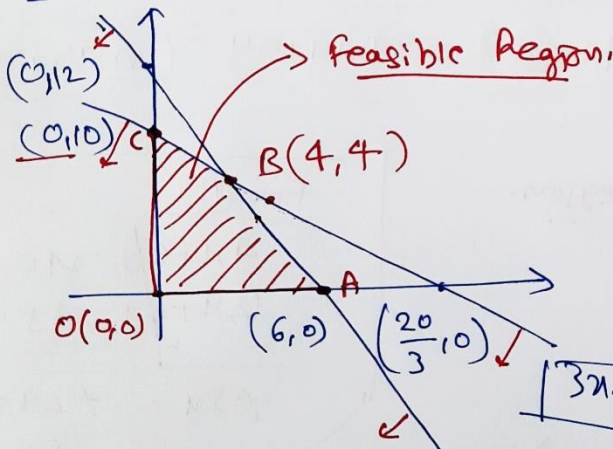 Feasible Region.
(0,12)
(0,10)
C
B(4,4)
A
O(0,0)
(6,0)
(20/3,0)
3x